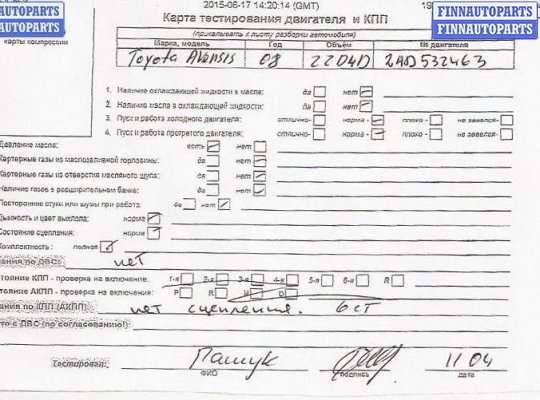 FINNAUTOPARTS
FINNAUTOPARTS
FINNAUTOPARTS
FINNAUTOPARTS
2015-06-17 14:20:14 (GMT)
19
Карта тестирования двигателя и КПП
карты компрессии
(прикалывать к листу разборки автомобиля)
Марка, модель Год Объём № двигателя
Toyota Avensis 08 2204D 2AD532463
1. Наличие охлаждающей жидкости в масле: да нет
2. Наличие масла в охлаждающей жидкости: да нет
3. Пуск и работа холодного двигателя: отлично- норма - плохо- не завелся-
4. Пуск и работа прогретого двигателя: отлично- норма - плохо - не завелся-
Давление масла: есть нет
Картерные газы из маслозаливной горловины: да нет
Картерные газы из отверстия масляного щупа: да нет
Наличие газов в расширительном бачке: да нет
Посторонние стуки или шумы при работе: да нет
Дымность и цвет выхлопа: норма
Состояние сцепления: норма
Комплектность : полная
ания по ДВС: нет
тояние КПП - проверка на включение: 1-я 2-я 3-я 4-я 5-я 6-я R
тояние АКПП - проверка на включение: P R N D
ания по КПП (АКПП): нет сцепления. 6 ст
то с ДВС (по согласованию):
Тестировал: Пашук 11 04
ФИО подпись дата